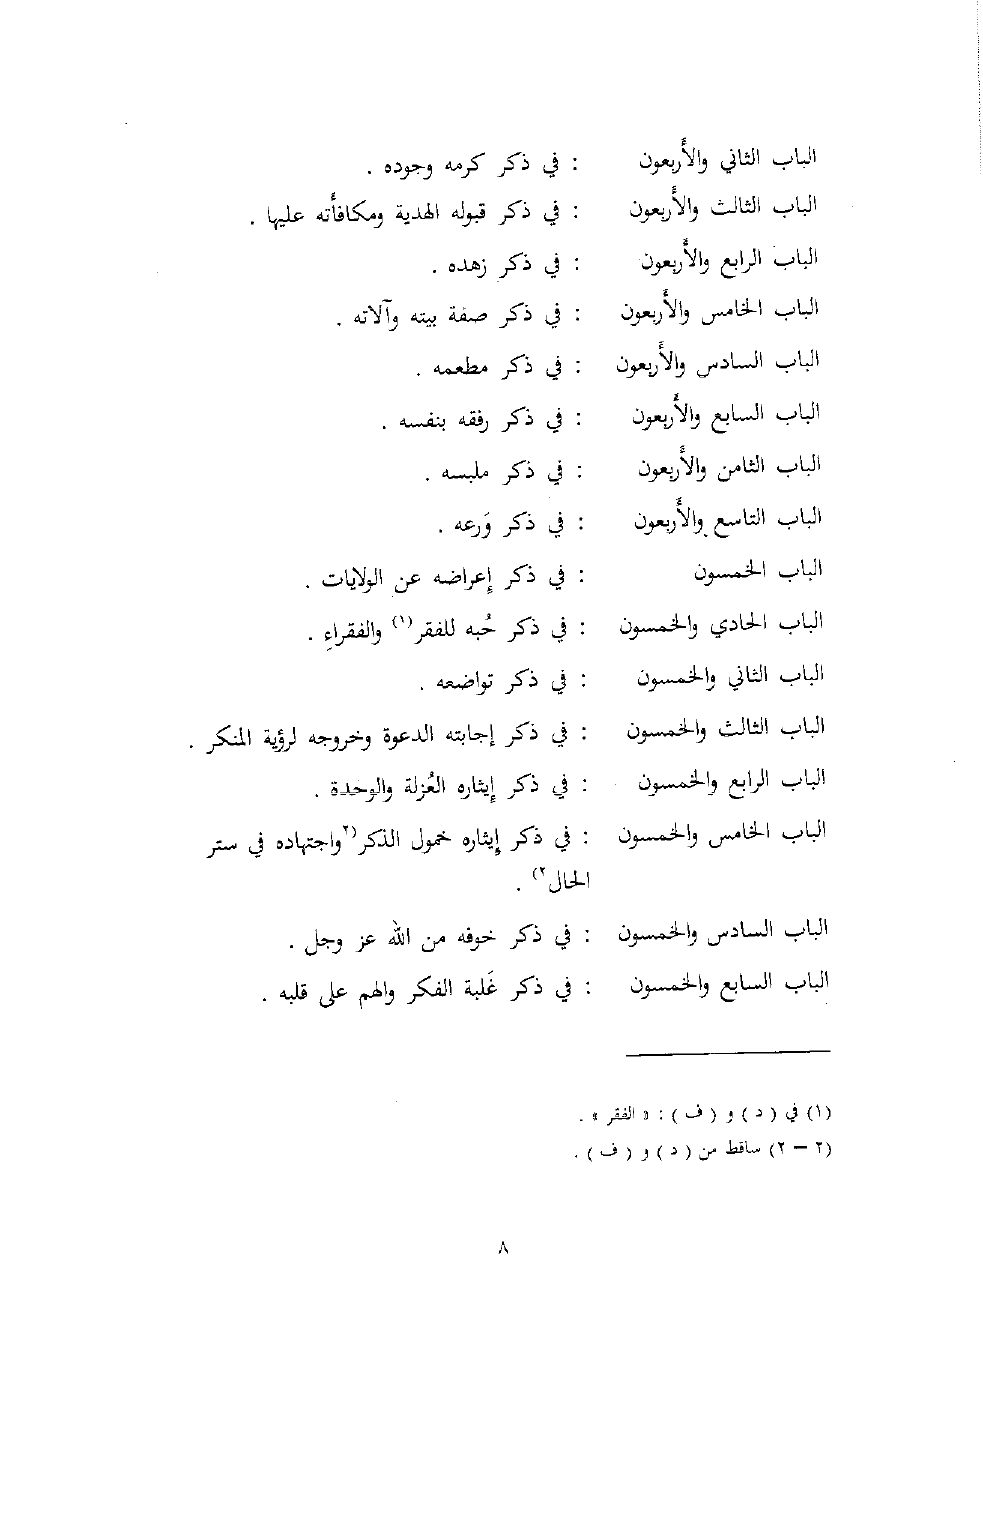 الباب الثاني والأربعون : في ذكر كرمه وجوده .
الباب الثالث والأربعون : في ذكر قبوله الهدية ومكافأته عليها .
الباب الرابع والأربعون : في ذكر زهده .
الباب الخامس والأربعون : في ذكر صفة بيته وآلاته .
الباب السادس والأربعون : في ذكر مطعمه .
الباب السابع والأربعون : في ذكر رفقه بنفسه .
الباب الثامن والأربعون : في ذكر ملبسه .
الباب التاسع والأربعون : في ذكر وَرعه .
الباب الخمسون : في ذكر إعراضه عن الولايات .
الباب الحادي والخمسون : في ذكر حُبه للفقر(١) والفقراءِ .
الباب الثاني والخمسون : في ذكر تواضعه .
الباب الثالث والخمسون : في ذكر إجابته الدعوة وخروجه لرؤية المنكر .
الباب الرابع والخمسون : في ذكر إيثاره العُزلة والوحدة .
الباب الخامس والخمسون : في ذكر إيثاره خمول الذكر(٢واجتهاده في ستر
الحال٢) .
الباب السادس والخمسون : في ذكر خوفه من الله عز وجل .
الباب السابع والخمسون : في ذكر غَلبة الفكر والهم على قلبه .
(١) في ( د ) و ( ف ) : « الفقر » .
(٢ – ٢) ساقط من ( د ) و ( ف ) .
٨